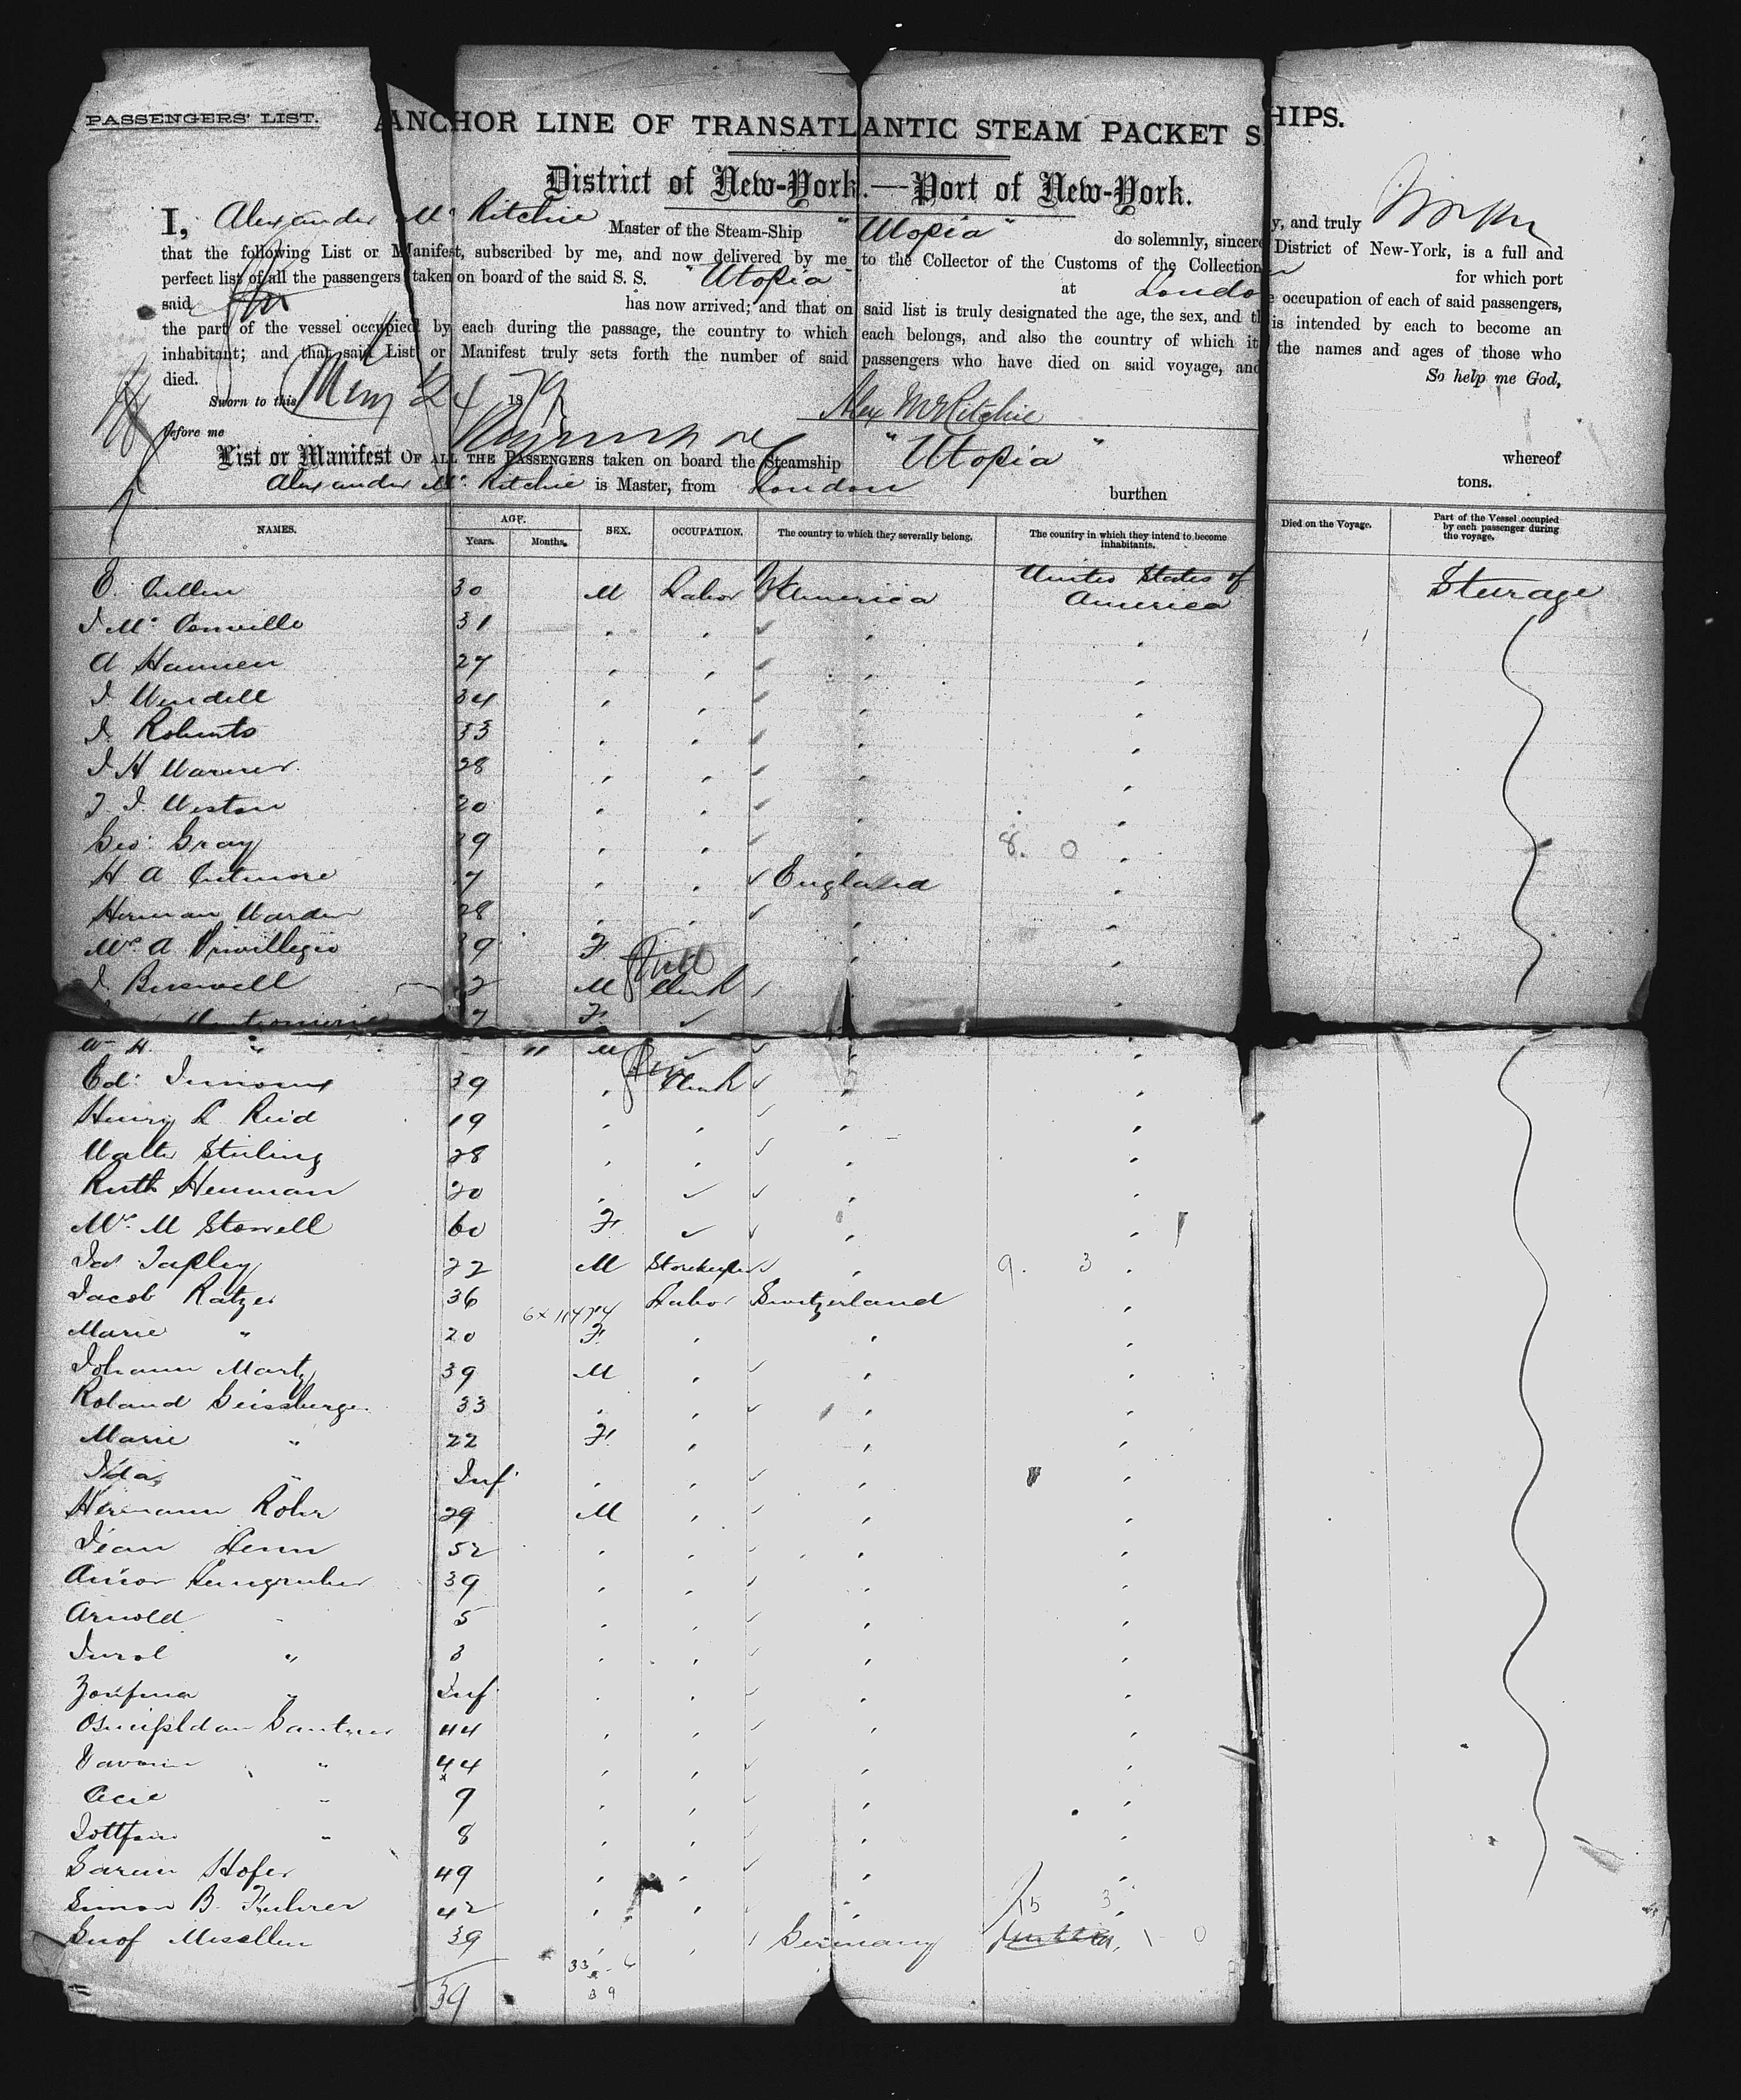 PASSENGERS' LIST.
ANCHOR LINE OF TRANSATLANTIC STEAM PACKET SHIPS.
District of New-York.—Port of New-York.
I, Alexander Mc Ritchie Master of the Steam-Ship "Utopia" do solemnly, sincerely, and truly
that the following List or Manifest, subscribed by me, and now delivered by me to the Collector of the Customs of the Collection District of New-York, is a full and
perfect list of all the passengers taken on board of the said S. S. "Utopia" at London for which port
said has now arrived; and that on said list is truly designated the age, the sex, and the occupation of each of said passengers,
the part of the vessel occupied by each during the passage, the country to which each belongs, and also the country of which it is intended by each to become an
inhabitant; and that said List or Manifest truly sets forth the number of said passengers who have died on said voyage, and the names and ages of those who
died. So help me God,
Sworn to this May 24 1879 Alex McRitchie
Before me
List or Manifest OF ALL THE PASSENGERS taken on board the Steamship "Utopia" whereof
Alexander Mc Ritchie is Master, from London burthen tons.
NAMES. AGE. Years. Months. SEX. OCCUPATION. The country to which they severally belong. The country in which they intend to become inhabitants. Died on the Voyage. Part of the Vessel occupied by each passenger during the voyage.
E. Cullen 30 M Labor America United States of America Steerage
J Mc Conville 31
A Hannen 27
J Wendell 34
J. Roberts 33
J H Warner 28
J. Weston 20
Geo: Gray 9 8. 0
H A 7 England
Herman Warden 28
Mrs A Privillegio 39 F.
J Buswell 2 M Clerk
7 F
W H. " 11 M
Ed: 39 Clerk
Henry L Reid 19
Walter Stirling 28
Ruth Henman 20
Mrs M Stowell 60 F.
Jas Tapley 22 M Storekeeper 9. 3
Jacob Ratzer 36 Labor Switzerland
Marie " 20 F.
Johann Martz 39 M
Roland Geissberger 33
Marie " 22 F.
Ida " Inf
Hermann Rohr 29 M
Jean Henn 52
39
Arnold " 5
" 3
" Inf
44
" 44
" 9
" 8
Hofer 49
Simon B. 42 15 3
39 Germany 1 0
39